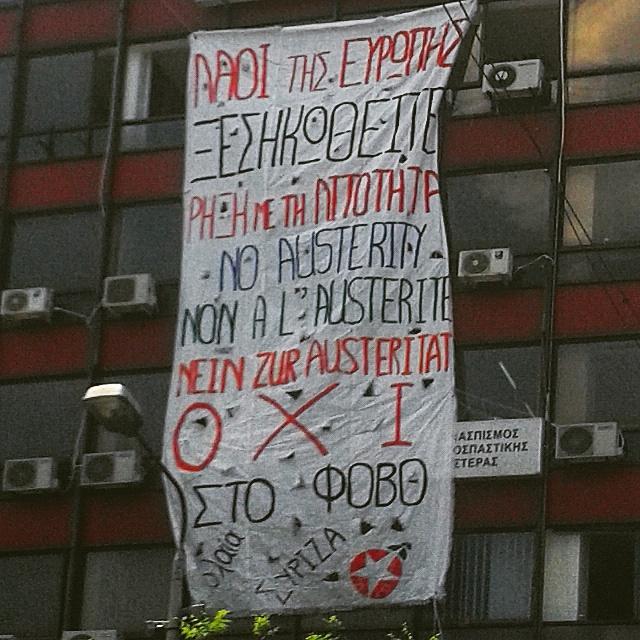 ΛΑΟΙ ΤΗΣ ΕΥΡΩΠΗΣ
ΞΕΣΗΚΩΘΕΙΤΕ
ΡΗΞΗ ΜΕ ΤΗ ΛΙΤΟΤΗΤΑ
NO AUSTERITY
NON A L'' AUSTERITE
NEIN ZUR AUSTERITAT
ΟΧΙ
ΣΤΟ ΦΟΒΟ
ΣΥΡΙΖΑ
ΑΣΠΙΣΜΟΣ
ΟΣΠΑΣΤΙΚΗΣ
ΣΤΕΡΑΣ